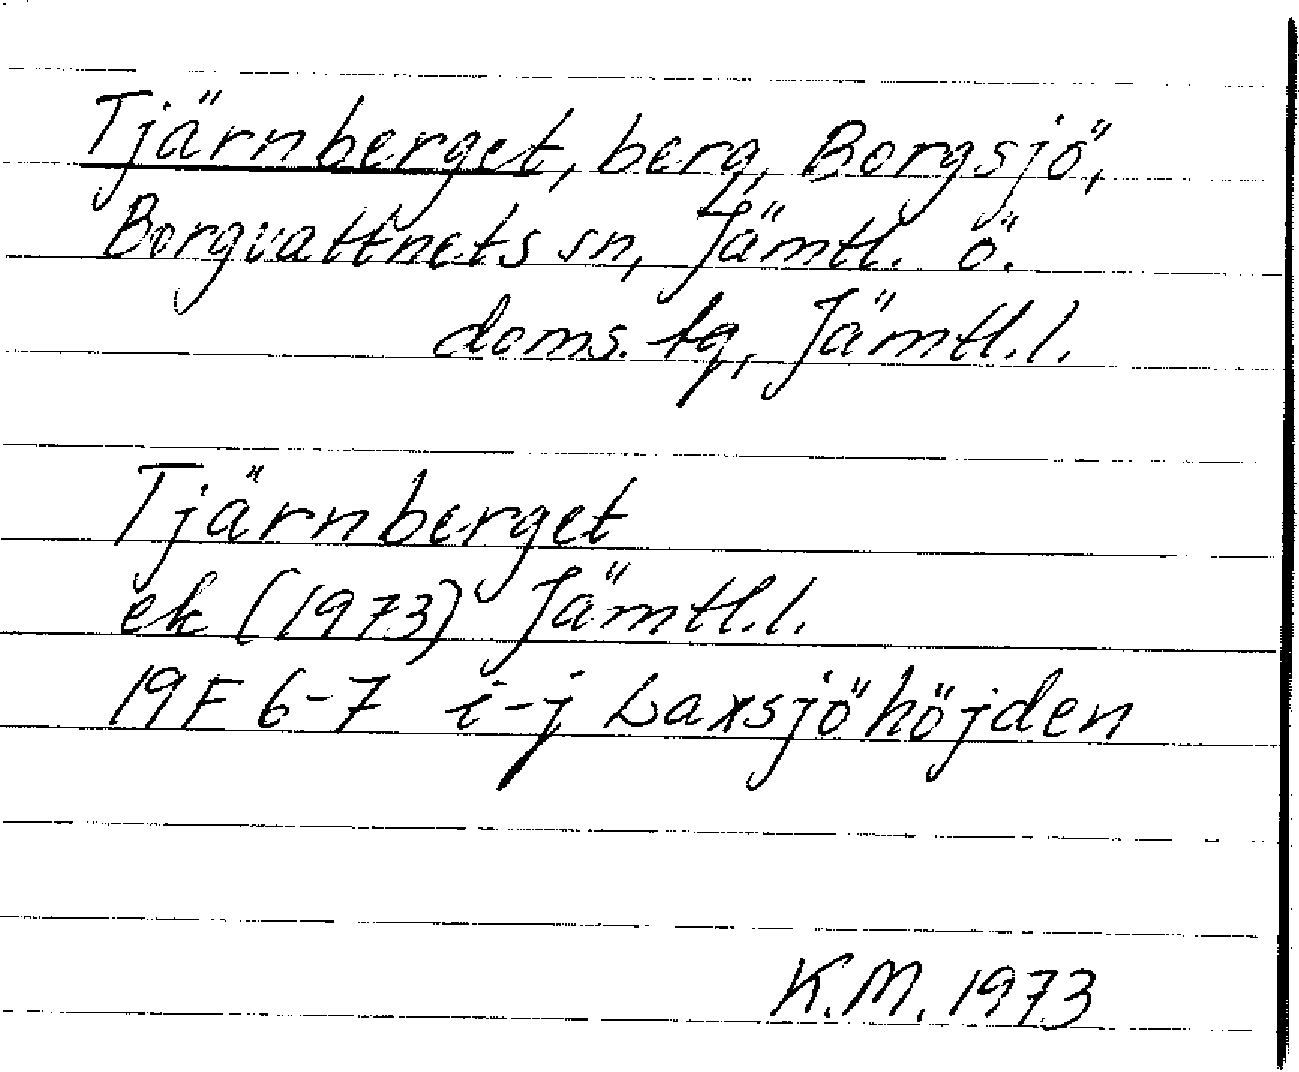 Tjärnberget, berg, Borgsjö,
Borgvattnets sn, Jämtl. ö.
doms. tg, Jämtl. l.
Tjärnberget
ek (1973) Jämtl. l.
19F 6-7 i-j Laxsjöhöjden
K.M. 1973